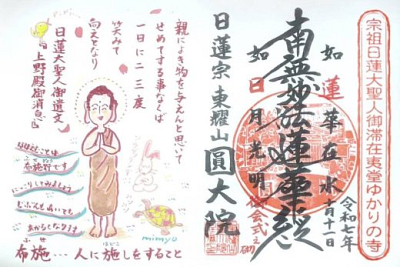 宗祖日蓮大聖人御滞在夷堂ゆかりの寺
令和七年
十月十二日
如蓮華在水
南無妙法蓮華経
如日月光明
御会式
日蓮宗 東耀山 圓大院
親によき物を与えんと思いて
せめてする事なくば
一日に二三度
笑みて
向えとなり
日蓮大聖人御遺文
『上野殿御消息』
布施行です
にっこりしてみましょう
mimyo
布施…人に施しをすること